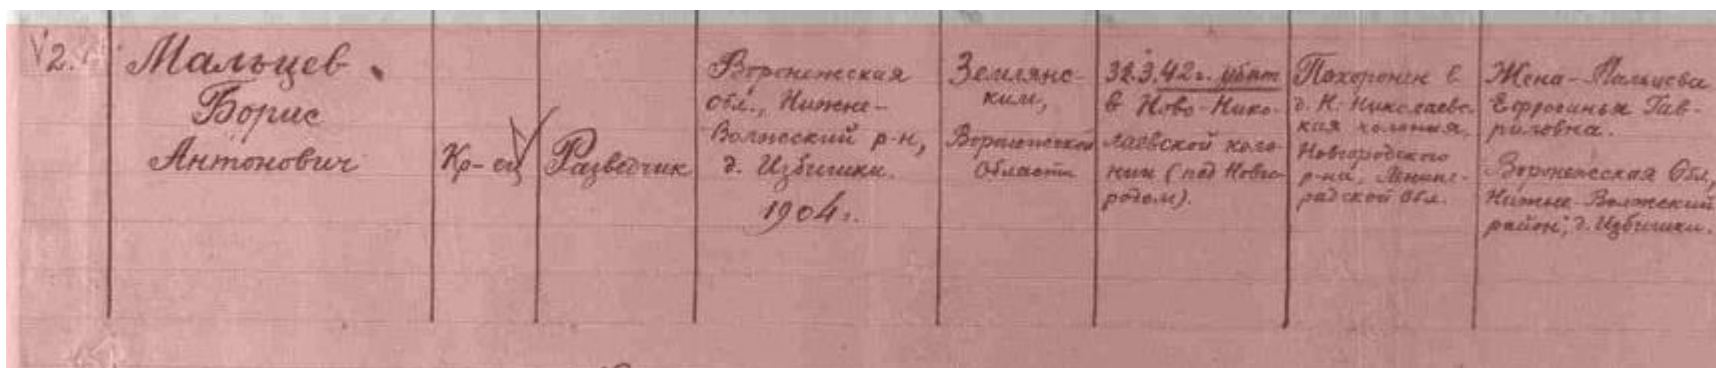 2.
Мальцев
Борис
Антонович
Кр-ец
Разведчик
Воронежская
обл., Нижне-
Волжский р-н,
д. Избищики.
1904г.
Землянс-
ким,
Воронежской
Области
3.42г. убит
в Ново-Нико-
лаевской коло-
нии (под Новго-
родом).
Похоронен в
д. Н. Николаевс-
кая колония,
Новгородского
р-на, Ленинг-
радской обл.
Жена - Мальцева
Ефросинья Гав-
риловна.
Воронежская Обл,
Нижне-Волжский
район, д. Избищики.